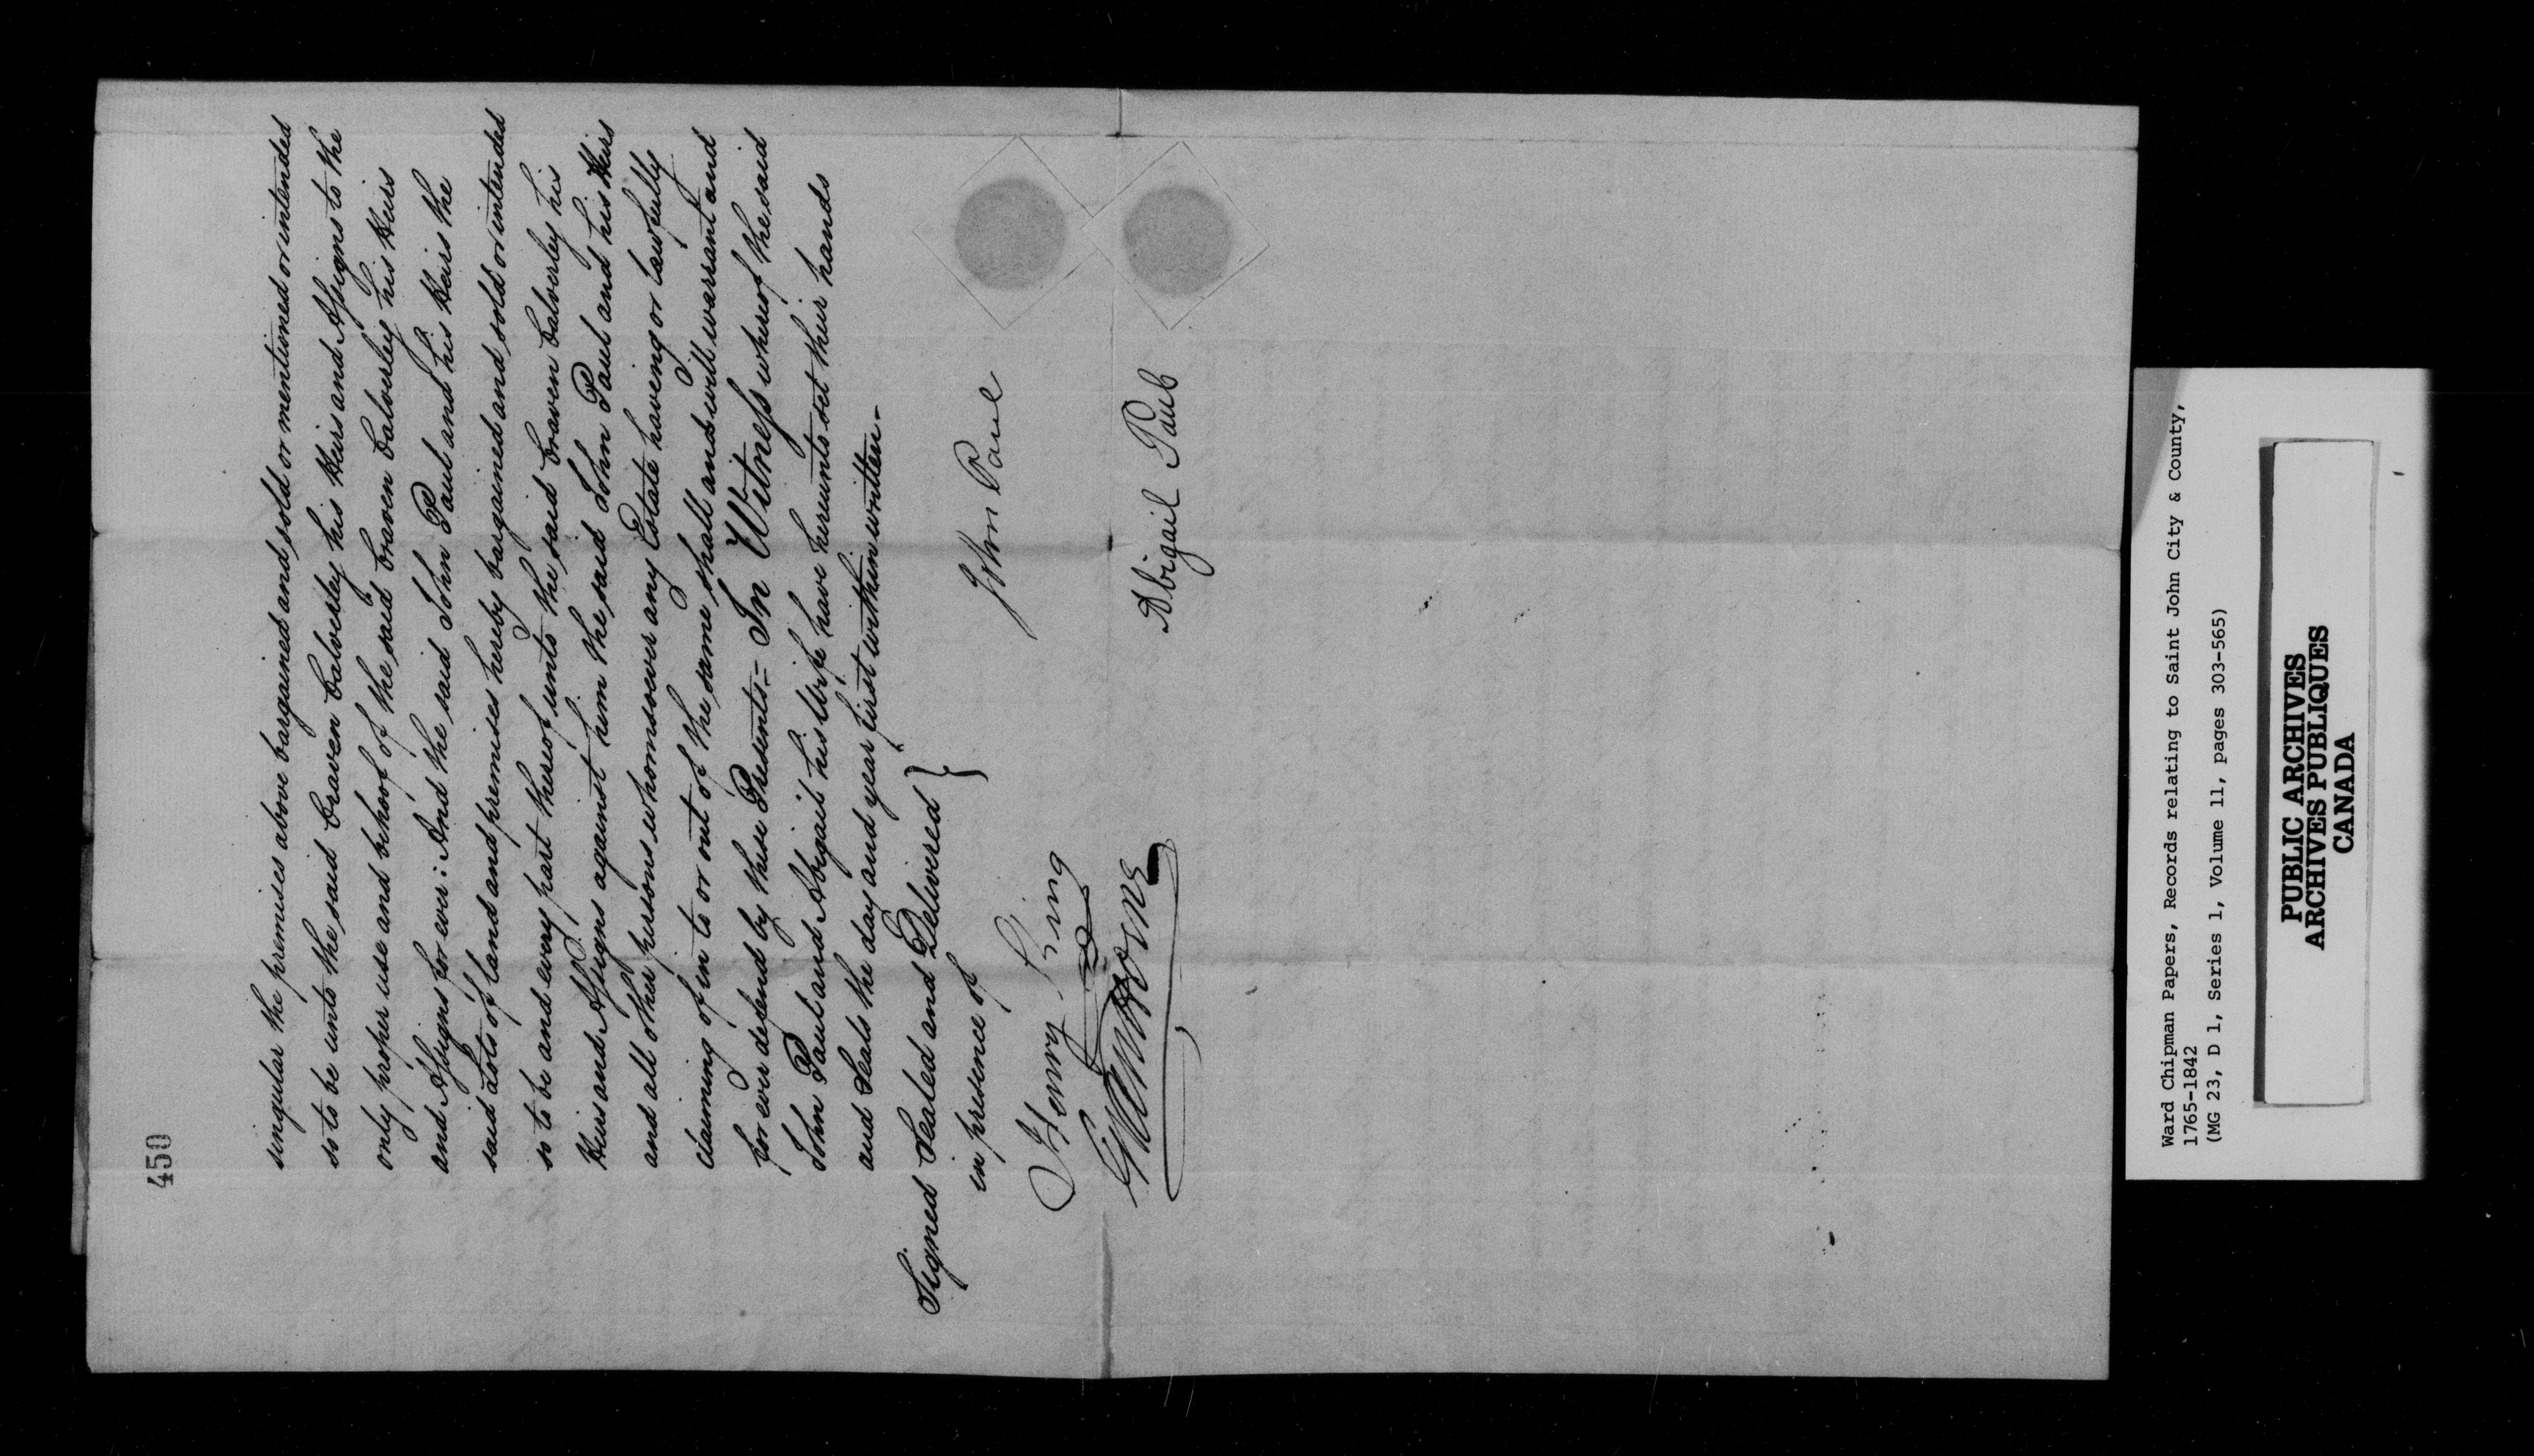 450
singular the premises above bargained and sold or mentioned or intended
so to be unto the said Craven Calverley his Heirs and Assigns to the
only proper use and behoof of the said Craven Calverley his Heirs
and Assigns for ever: And the said John Paul and his Heirs the
said Lots of land and premises hereby bargained and sold or intended
so to be and every part thereof unto the said Craven Calverley his
Heirs and Assigns against him the said John Paul and his Heirs
and all other persons whomsoever any Estate having or lawfully
claiming of in to or out of the same shall and will warrant and
for ever defend by these Presents = In Witness whereof the said
John Paul and Abigail his Wife have hereunto set their hands
and Seals the day and year first within written -
Signed Sealed and Delivered }
in presence of
John Paul
Henry
Abigail Paul
Ward Chipman Papers, Records relating to Saint John City & County,
1765-1842
(MG 23, D 1, Series 1, Volume 11, pages 303-565)
PUBLIC ARCHIVES
ARCHIVES PUBLIQUES
CANADA